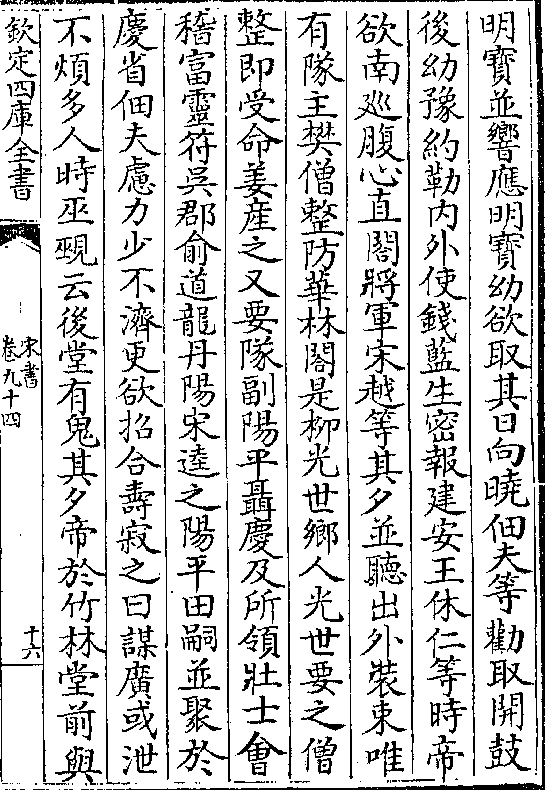 明寶並響應明寶幼欲取其日向曉佃夫等勸取開鼓
後幼豫約勒内外使錢藍生密報建安王休仁等時帝
欲南巡腹心直閤將軍宋越等其夕並聽出外裝束唯
有隊主樊僧整防華林閤是柳光世鄉人光世要之僧
整即受命姜産之又要隊副陽平聶慶及所領壯士會
稽富靈符吳郡俞道龍丹陽宋逵之陽平田嗣並聚於
慶省佃夫慮力少不濟更欲招合壽寂之曰謀廣或泄
不煩多人時巫覡云後堂有鬼其夕帝於竹林堂前與
欽定四庫全書
宋書
卷九十四
十六